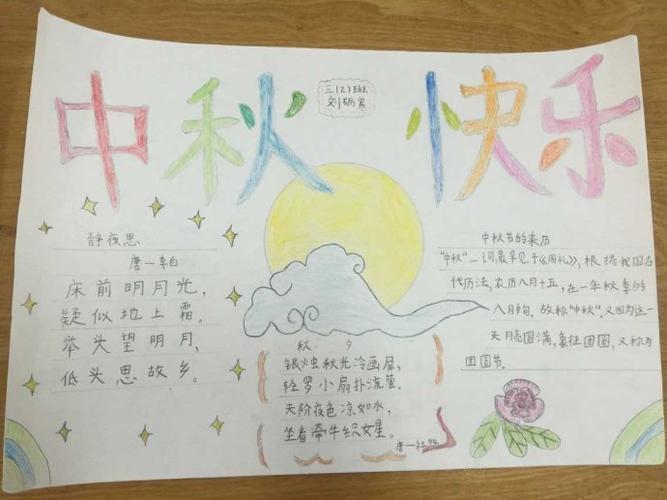 中秋快乐
三(2)班
刘砺
静夜思
唐一李白
床前明月光，
疑似地上霜。
举头望明月，
低头思故乡。
秋 夕
银烛秋光冷画屏，
轻罗小扇扑流萤。
天阶夜色凉如水，
坐看牵牛织女星。
唐一杜牧
中秋节的来历
"中秋"一词,最早见于《周礼》，根据我国古
代历法,农历八月十五,在一年秋季的
八月中旬，故称"中秋"。又因为这一
天月亮圆满,象征团圆,又称为
团圆节。